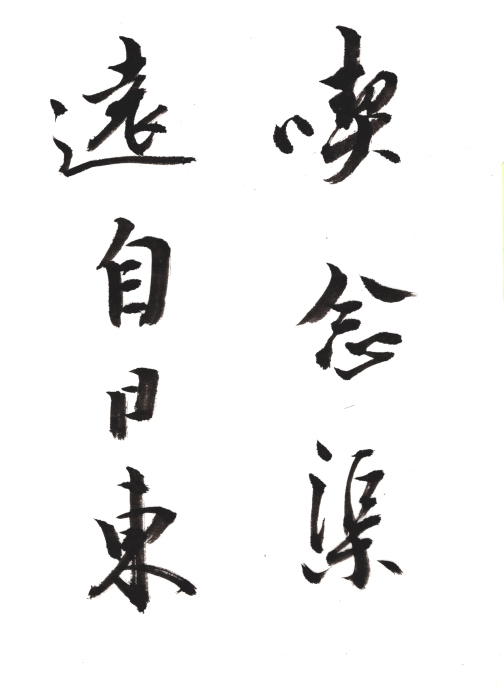 喫念渠
遠自日東